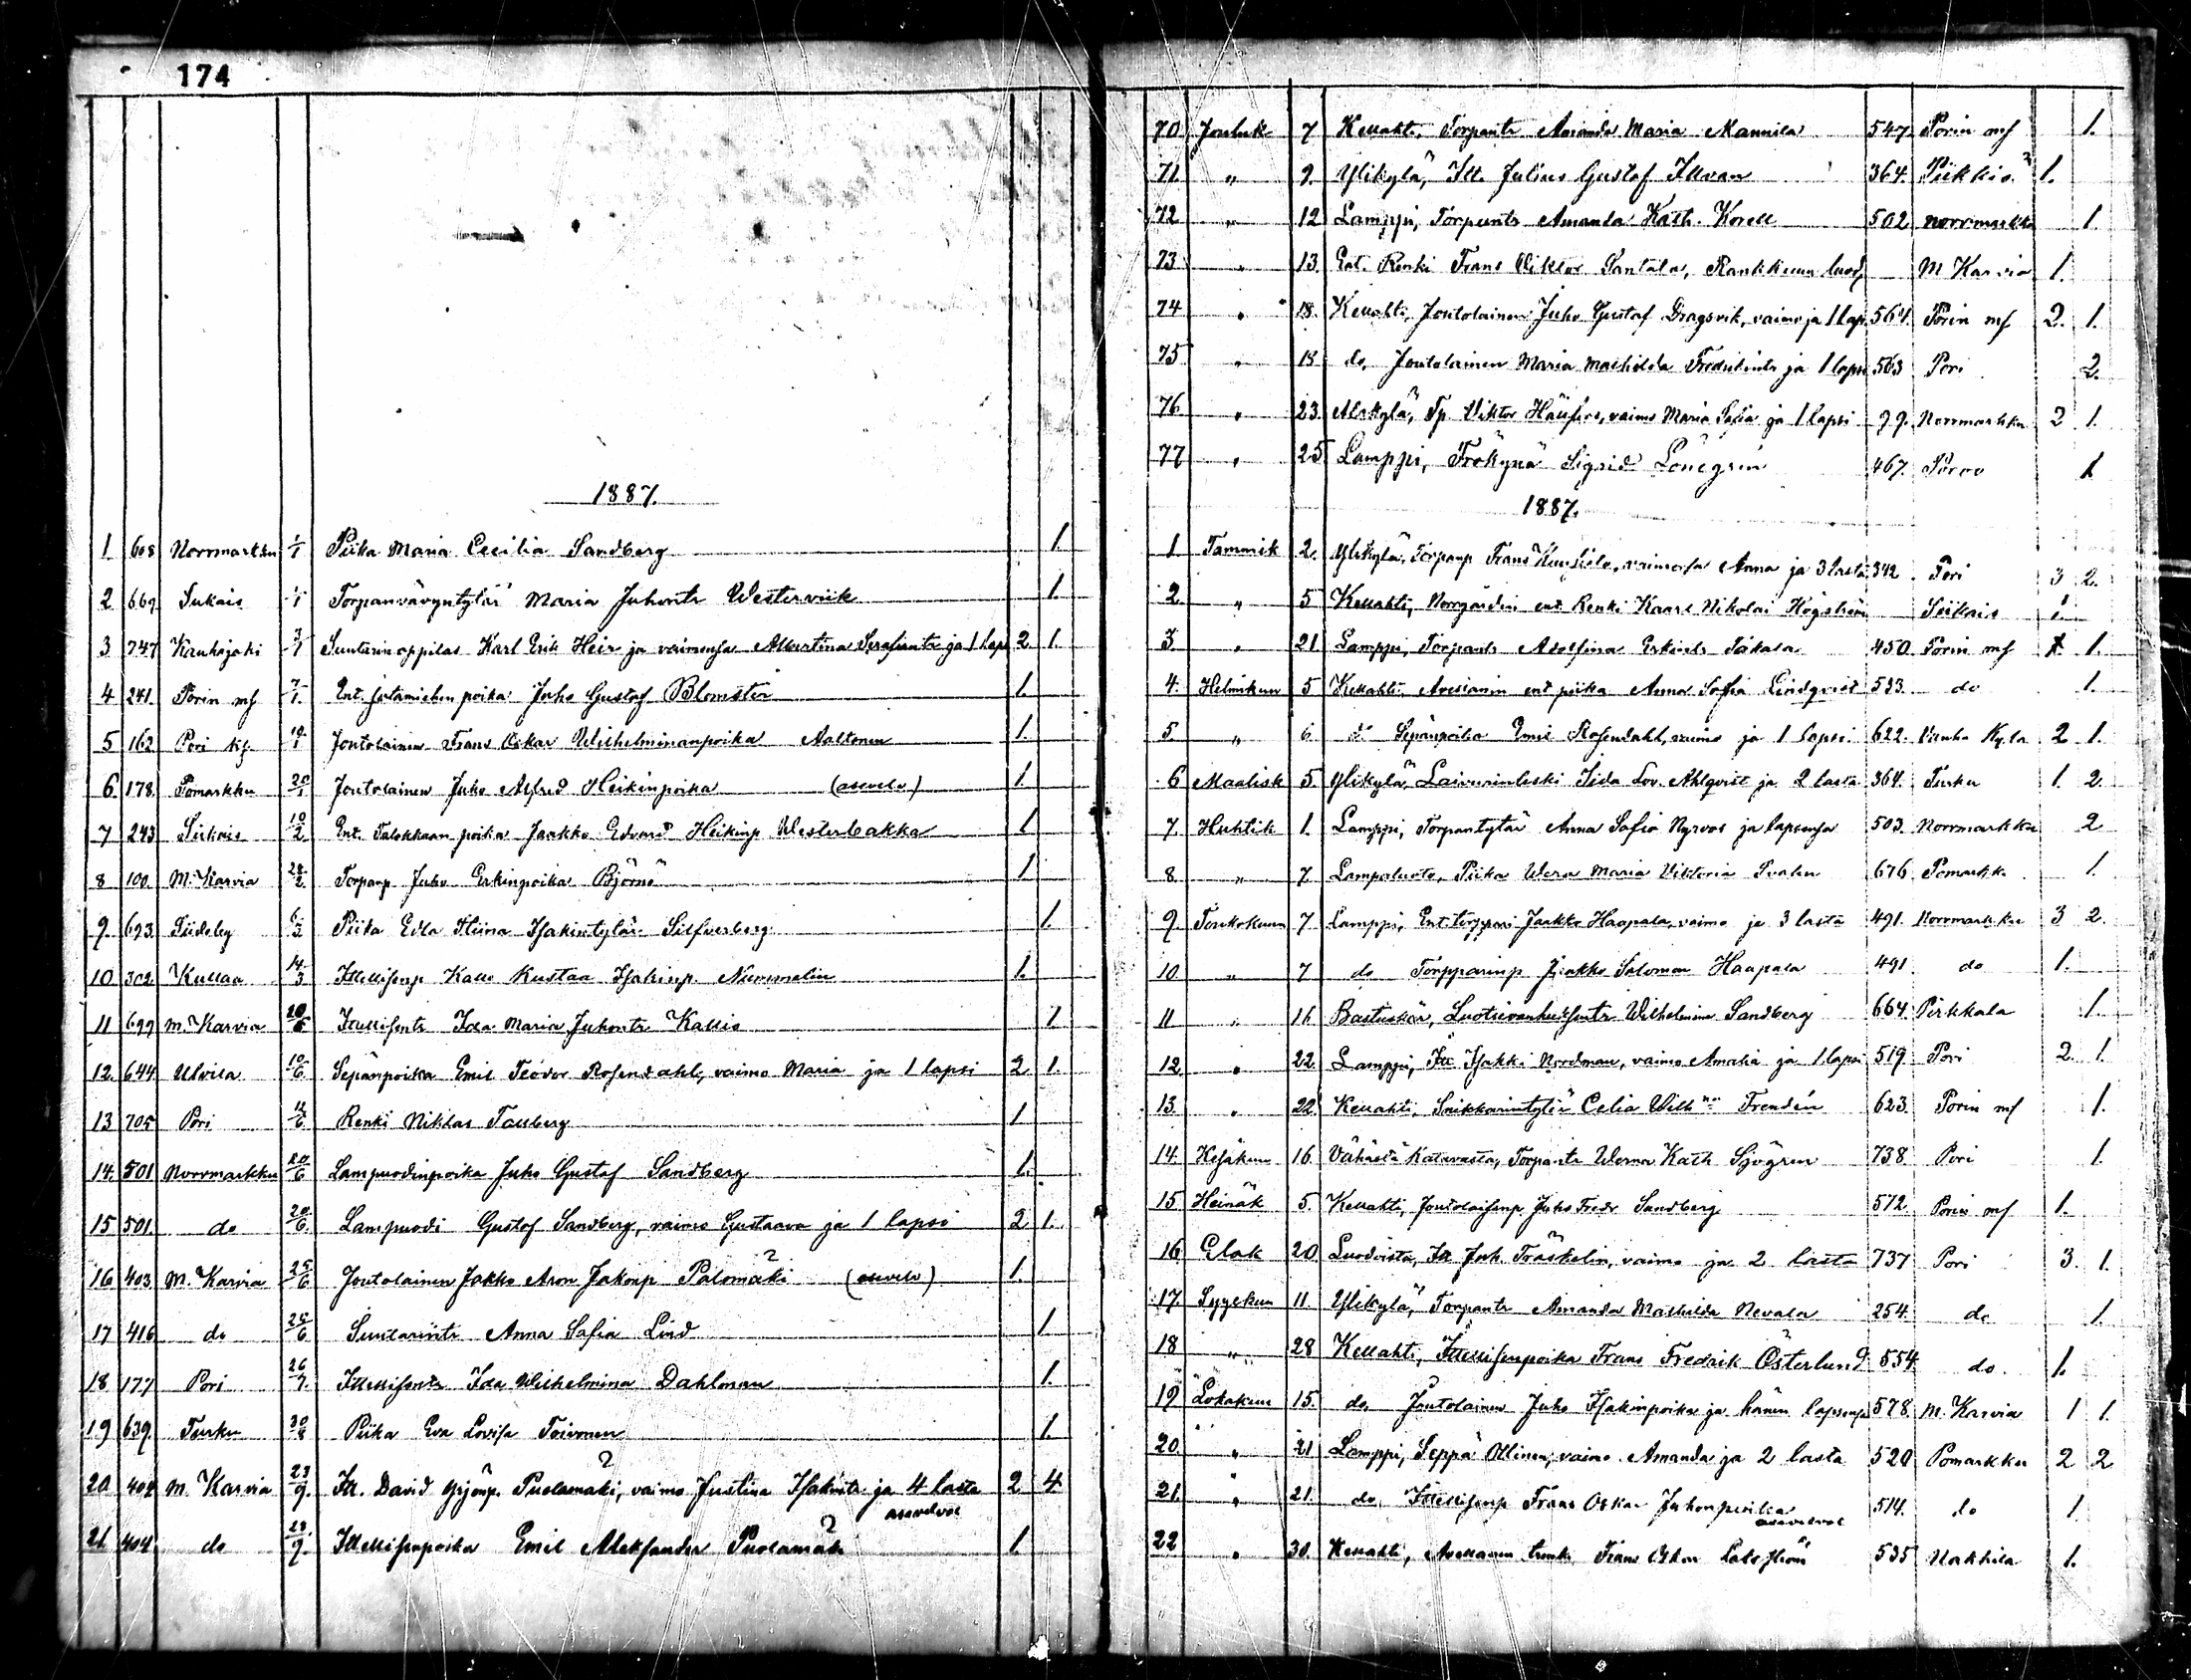 174
1887.
1 608 Norrmarkku 1/1 Piika Maria Cecilia Sandberg 1.
2 669 Siikais 1/1 Torpanvävyntytär Maria Juhontr Westerviik 1.
3 747 Kauhajoki 3/1 Suutarinoppilas Karl Erik Heir ja vaimonsa Albertina Serafiantr ja 1 laps 2 1.
4 241. Porin mf 7/1. Ent. poika Juho Gustaf Blomster 1.
5 162 Pori kf. 19/1 Joutolainen Frans Oskar Wilhelminanpoika Aaltonen 1.
6. 178. Pomarkku 20/1 Joutolainen Juho Alfred Heikinpoika (asuele) 1.
7 243 Siikais 10/2 Ent. Talokkaan poika Jaakko Edvard Heikinp Westerbakka 1
8 100. M. Karvia 28/2. Torpanp Juho Erkinpoika Björnö 1
9. 693. Tiideby 6/3 Piika Edla Hiina Isakintytär Silfverberg 1.
10 302 Kullaa 14/3 Ittellisenp Kalle Kustaa Isakinp. Nummelin 1.
11 699 M. Karvia Ittellisentr Ida Maria Juhontr Kallio 1
12. 644 Ulvila 10/6. Sepänpoika Emil Teodor Rosendahl, vaimo Maria ja 1 lapsi 2 1.
13 705 Pori Renki Niklas Tallberg 1
14. 501 Norrmarkku 20/6 Lampuodinpoika Juho Gustaf Sandberg 1.
15 501. do 20/6. Lampuodi Gustaf Sandberg, vaimo Gustaava ja 1 lapsi 2 1.
16 403. M. Karvia 25/6 Joutolainen Jakko Aron Jakonp Palomäki ? (asuele) 1.
17 416 do 25/6 Suutarintr Anna Sofia Lind 1.
18 177 Pori 26/7. Ittellisentr Ida Wilhelmina Dahlman 1.
19 639. Turku Piika Eva Lovisa Toivonen 1.
20 404 M. Karvia 23/9. Itt. David Yrjönp. Puolamäki, ? vaimo Justina Isakintr ja 4 lasta 2 4
asuvelvoe
21. 404 do Ittellisenpoika Emil Aleksander Puolamäk ? 1.
70 Jouluk 7 Kellahti, Torpantr Amanda Maria Mannila 547 Porin mf 1.
71. „ 9. Ylikylä, Itt. Julius Gustaf Iltvan 364. Piikkiö ? 1.
72 „ 12 Lamppi, Torpantr Amanda Kath. Korell 502 Norrmarkku 1.
73 „ 13. Ent. Renki Frans Viktor Santala, M Karvia 1.
74 „ 18. Kellahti, Joutolainen Juho Gustaf Dragsvik, vaimo ja 1 lap. 564. Porin mf 2. 1.
75 „ 18 do, Joutolainen Maria Mathilda Fredrikintr ja 1 lapsi 563 Pori 2.
76 „ 23. Alakylä, Tp. Viktor vaimo Maria Sofia ja 1 lapsi 99. Norrmarkku 2 1.
77 „ 25 Lamppi, Frökynä Sigrid Lönegren 467. Porvo 1
1887.
1 Tammik 2. Ylikylä, Torpanp Frans vaimonsa Anna ja 3 lasta 342 Pori 3 2.
2 „ 5 Kellahti, Norrgårdin ent Renki Kaarl Nikolai Högström Siikais 1
3 „ 21 Lamppi, Torpantr Adolfina Erkintr Sakala 450. Porin mf 1.
4. Helmikuu 5 Kellahti, ent piika Anna Sofia Lindqvist 533. do 1.
5. „ 6. do Sepänpoika Emil Rosendahl, vaimo ja 1 lapsi. 622. Vanha Kyla 2 1.
6 Maalisk 5. Ylikylä, Laivurinleski Iida Lov. Ahlqvist ja 2 lasta 364. Turku 1. 2.
7. Huhtik 1. Lamppi, Torpantytär Anna Sofia Nyroos ja lapsensa 503. Norrmarkku 2
8. „ 7. Lampaluoto, Piika Wera Maria Viktoria 676 Pomarkku 1.
9. Toukokuu 7 Lamppi, Ent. torppari Jaakko Haapala, vaimo ja 3 lasta 491. Norrmarkku 3 2.
10. „ 7 do Torpparinp Jaakko Salomon Haapala 491 do 1.
11 „ 16 Bastuskär, Luotsivanhustr Wilhelmina Sandberg 664. Pirkkala 1.
12 „ 22. Lamppi, Itt Isakki Nordman, vaimo Amalia ja 1 lapsi 519. Pori 2. 1.
13. „ 22. Kellahti, Snikkarintytär Celia Frendén 623. Porin mf 1.
14. Kesäkuu 16. Vähästä Katavasta, Torpantr Werna Kath Sjögren 738. Pori 1.
15 Heinäk 5. Kellahti, Joutolaisenp. Juho Fredr Sandberg 572. Porin mf 1.
16 Elok 20 Luodoista, Itt Juh. Träskelin, vaimo ja 2 lasta 737 Pori 3. 1.
17. Syyskuu 11. Ylikylä, Torpantr Amanda Mathilda Nevala 254. do 1.
18 „ 28 Kellahti, Ittellisenpoika Frans Fredrik Österlund 554. do. 1.
19 Lokakuu 15. do Joutolainen Juho Isakinpoika ja hänen lapsensa 578. M. Karvia 1 1.
20. „ 21 Lamppi, Seppä Ollinen, vaimo Amanda ja 2 lasta 520 Pomarkku 2 2
21. „ 21. do Ittellisenp Frans Oskar Juhonpoika 514. do 1.
22 „ 30. Kellahti, Frans Oskar 535 Nakkila 1.